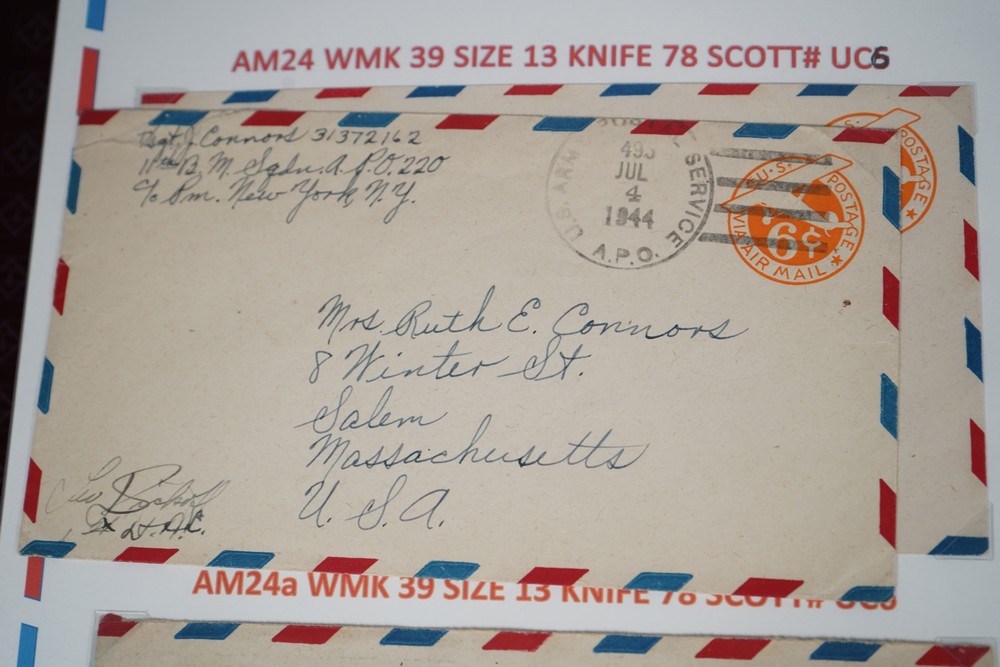 AM24 WMK 39 SIZE 13 KNIFE 78 SCOTT# UC6
Sgt. J. Connors 31372162
11th B. M. Sqdn. A.P.O. 220
c/o Pm. New York N.Y.
U.S. ARMY POSTAL SERVICE
A.P.O.
493
JUL
4
1944
U.S. POSTAGE
6¢
VIA AIR MAIL
POSTAGE
Mrs. Ruth E. Connors
8 Winter St.
Salem
Massachusetts
U. S. A.
AM24a WMK 39 SIZE 13 KNIFE 78 SCOTT# UC6